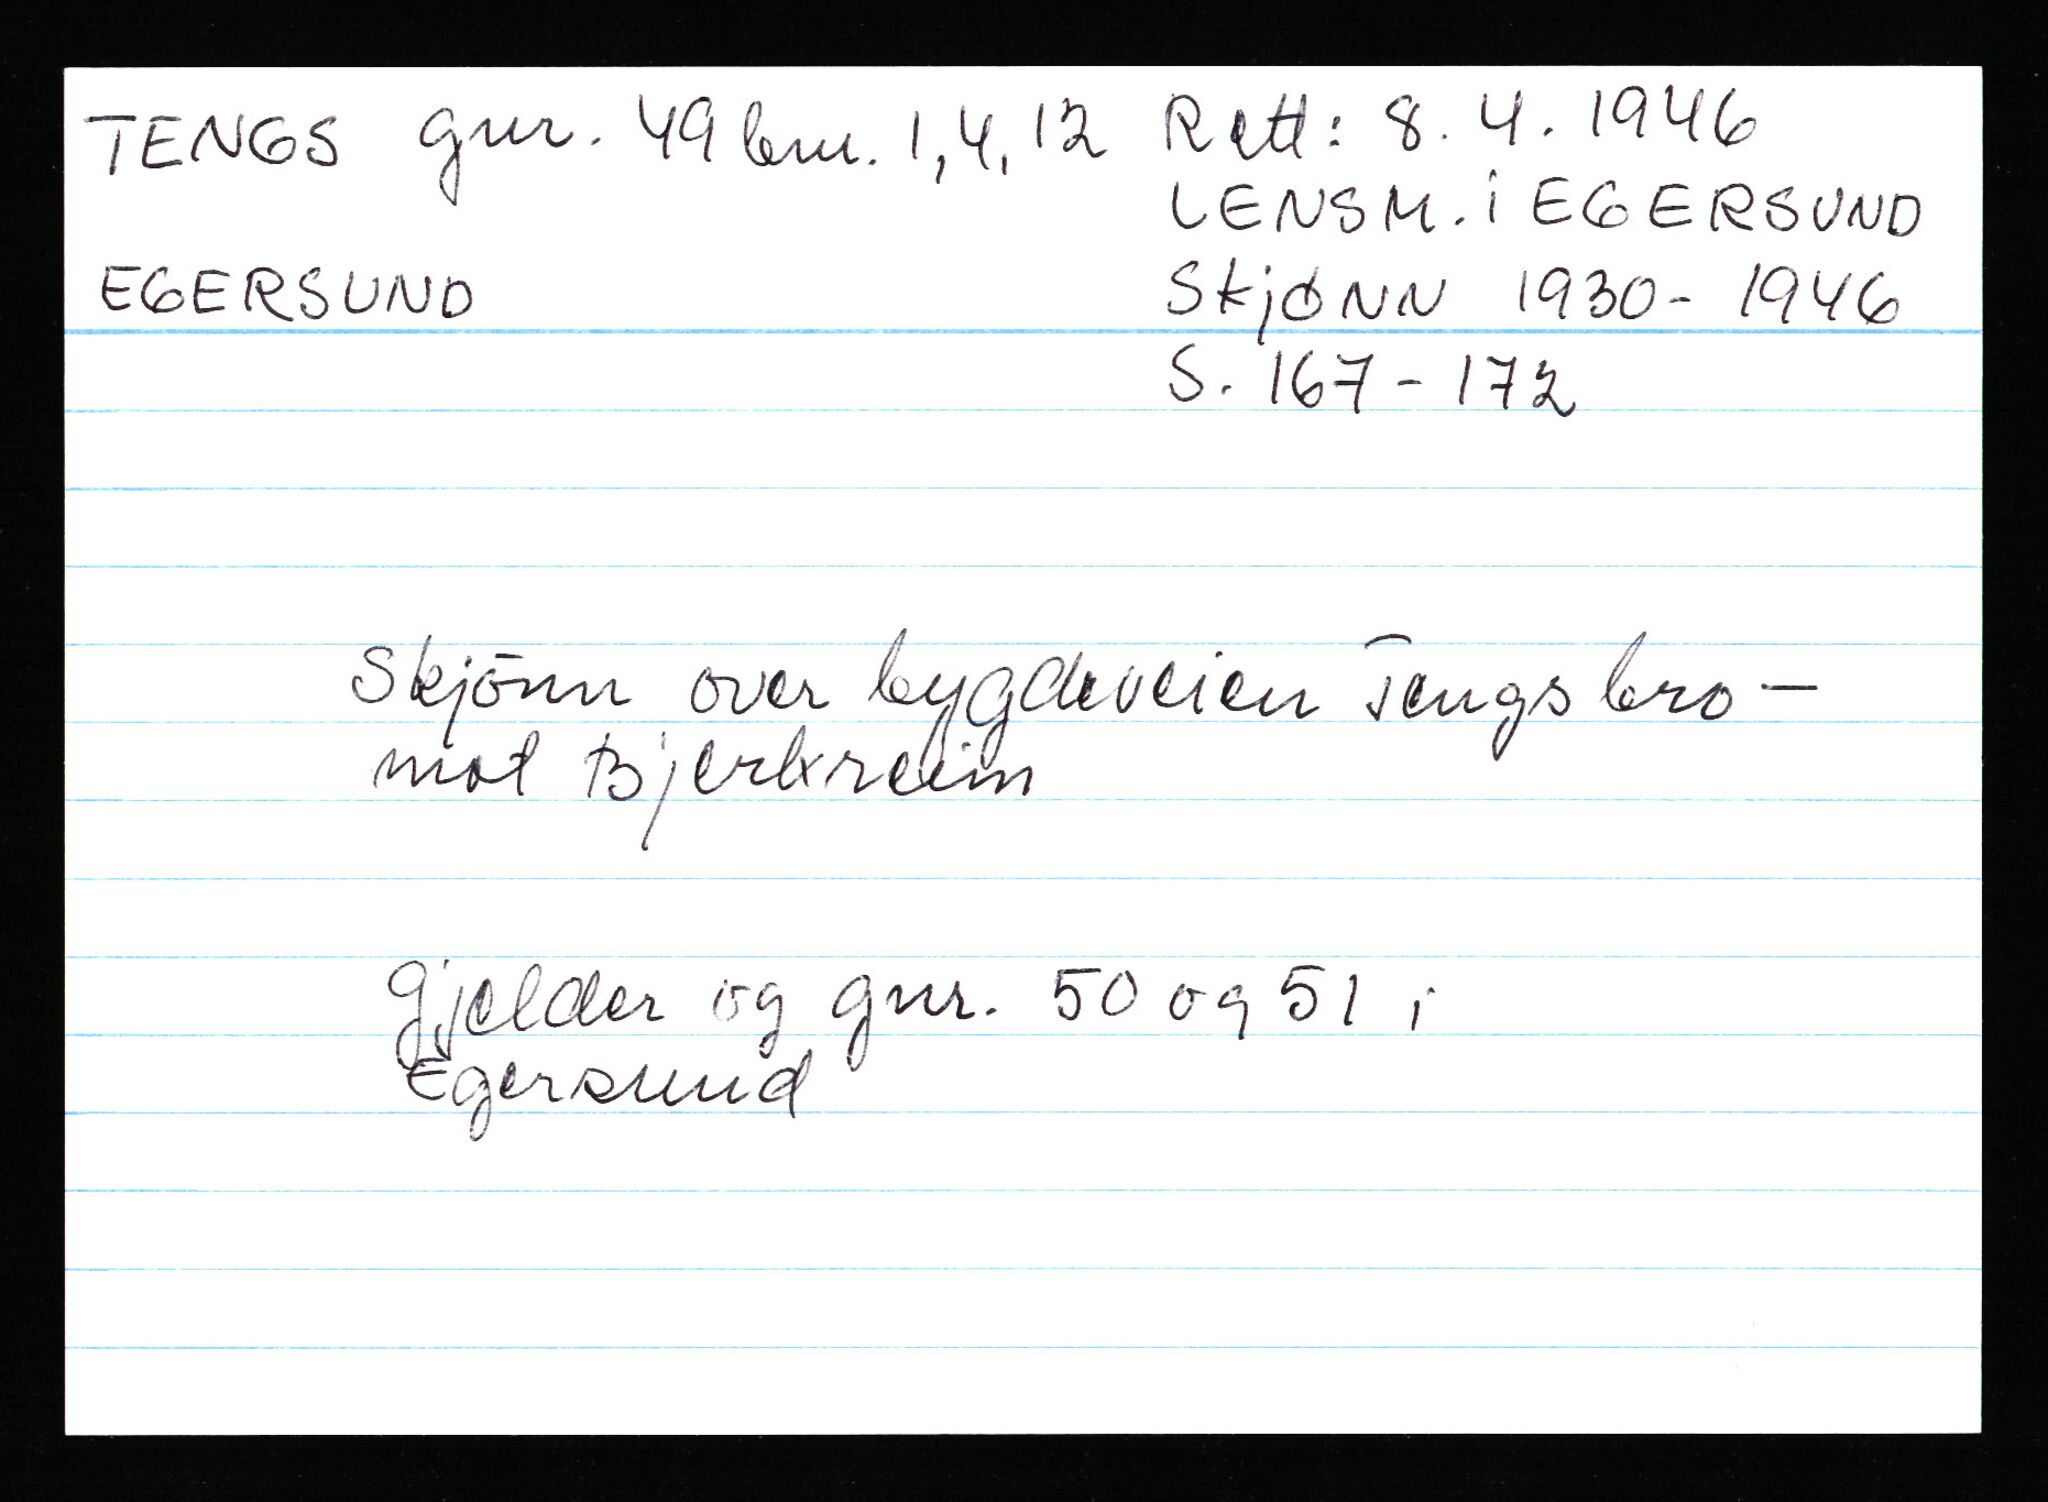 TENGS gnr. 49 bnr. 1, 4, 12 Rett: 8. 4. 1946
LENSM. i EGERSUND
EGERSUND Skjønn 1930 - 1946
S. 167 - 172
Skjönn over bygdeveien Tengsbro -
mot Bjerkreim
Gjelder og gnr. 50 og 51 i
Egersund